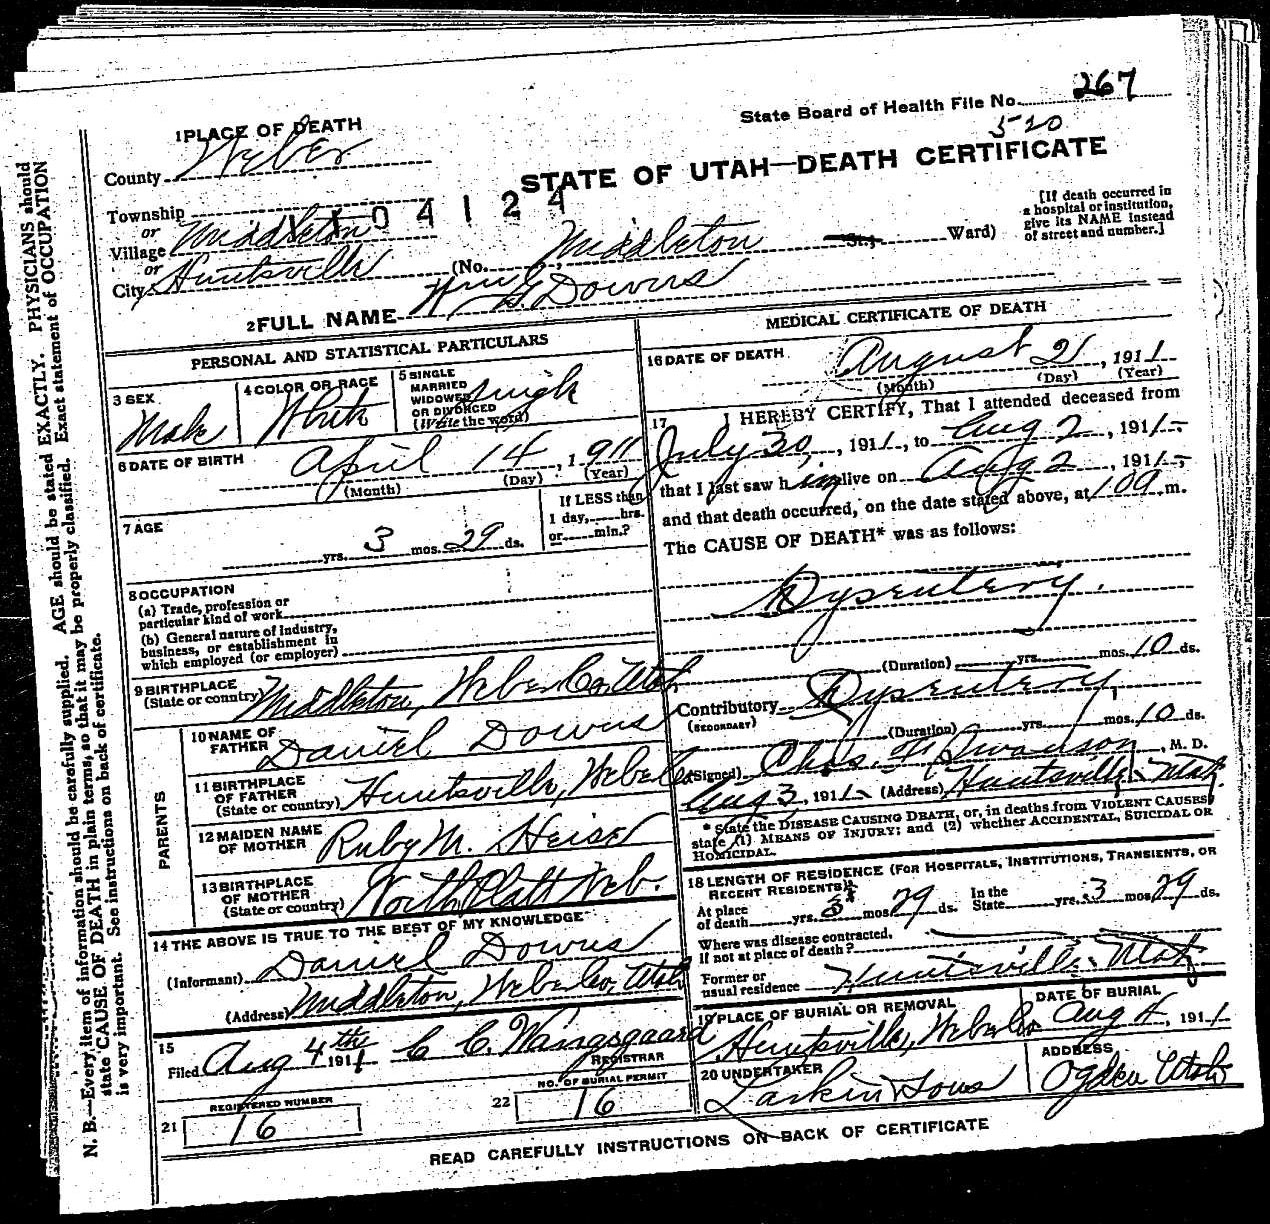 State Board of Health File No. 267
520
STATE OF UTAH—DEATH CERTIFICATE
1 PLACE OF DEATH
County Weber
Township
1104124
or
Village Middleton
or
City Huntsville
(No. Middleton St.; Ward)
[If death occurred in
a hospital or institution,
give its NAME instead
of street and number.]
2 FULL NAME Wm G. Downs
PERSONAL AND STATISTICAL PARTICULARS
3 SEX
Male
4 COLOR OR RACE
White
5 SINGLE
MARRIED
WIDOWED
OR DIVORCED
(Write the word)
Single
6 DATE OF BIRTH
April 14, 1911
(Month) (Day) (Year)
7 AGE
yrs. 3 mos. 29 ds.
If LESS than
1 day, hrs.
or min.?
8 OCCUPATION
(a) Trade, profession or
particular kind of work
(b) General nature of Industry,
business, or establishment in
which employed (or employer)
9 BIRTHPLACE
(State or country) Middleton, Weber Co, Utah
PARENTS
10 NAME OF
FATHER Daniel Downs
11 BIRTHPLACE
OF FATHER
(State or country) Huntsville, Weber Co
12 MAIDEN NAME
OF MOTHER Ruby M.
13 BIRTHPLACE
OF MOTHER
(State or country) North Platt Neb.
14 THE ABOVE IS TRUE TO THE BEST OF MY KNOWLEDGE
(Informant) Daniel Downs
(Address) Middleton, Weber Co, Utah
15
Filed Aug 4th 1911 C C. Wangsgaard
REGISTRAR
REGISTERED NUMBER
21 16
NO. OF BURIAL PERMIT
22 16
MEDICAL CERTIFICATE OF DEATH
16 DATE OF DEATH
August 2, 1911
(Month) (Day) (Year)
17 I HEREBY CERTIFY, That I attended deceased from
July 30, 1911, to Aug 2, 1911,
that I last saw him alive on Aug 2, 1911,
and that death occurred, on the date stated above, at m.
The CAUSE OF DEATH* was as follows:
Dysentery.
(Duration) yrs. mos. 10 ds.
Contributory Dysentery,
(SECONDARY)
(Duration) yrs. mos. 10 ds.
(Signed) Chas. Swanson, M. D.
Aug 3, 1911 (Address) Huntsville, Utah
* State the DISEASE CAUSING DEATH, or, in deaths from VIOLENT CAUSES,
state (1) MEANS OF INJURY; and (2) whether ACCIDENTAL, SUICIDAL OR
HOMICIDAL.
18 LENGTH OF RESIDENCE (FOR HOSPITALS, INSTITUTIONS, TRANSIENTS, OR
RECENT RESIDENTS)
At place
of death yrs. 3 mos. 29 ds.
In the
State yrs. 3 mos. 29 ds.
Where was disease contracted,
if not at place of death?
Former or
usual residence Huntsville Utah
19 PLACE OF BURIAL OR REMOVAL
Huntsville, Weber Co
DATE OF BURIAL
Aug 4, 1911
20 UNDERTAKER
Larkin & Sons
ADDRESS
Ogden Utah
READ CAREFULLY INSTRUCTIONS ON BACK OF CERTIFICATE
N. B.—Every item of information should be carefully supplied. AGE should be stated EXACTLY. PHYSICIANS should
state CAUSE OF DEATH in plain terms, so that it may be properly classified. Exact statement of OCCUPATION
is very important. See instructions on back of certificate.